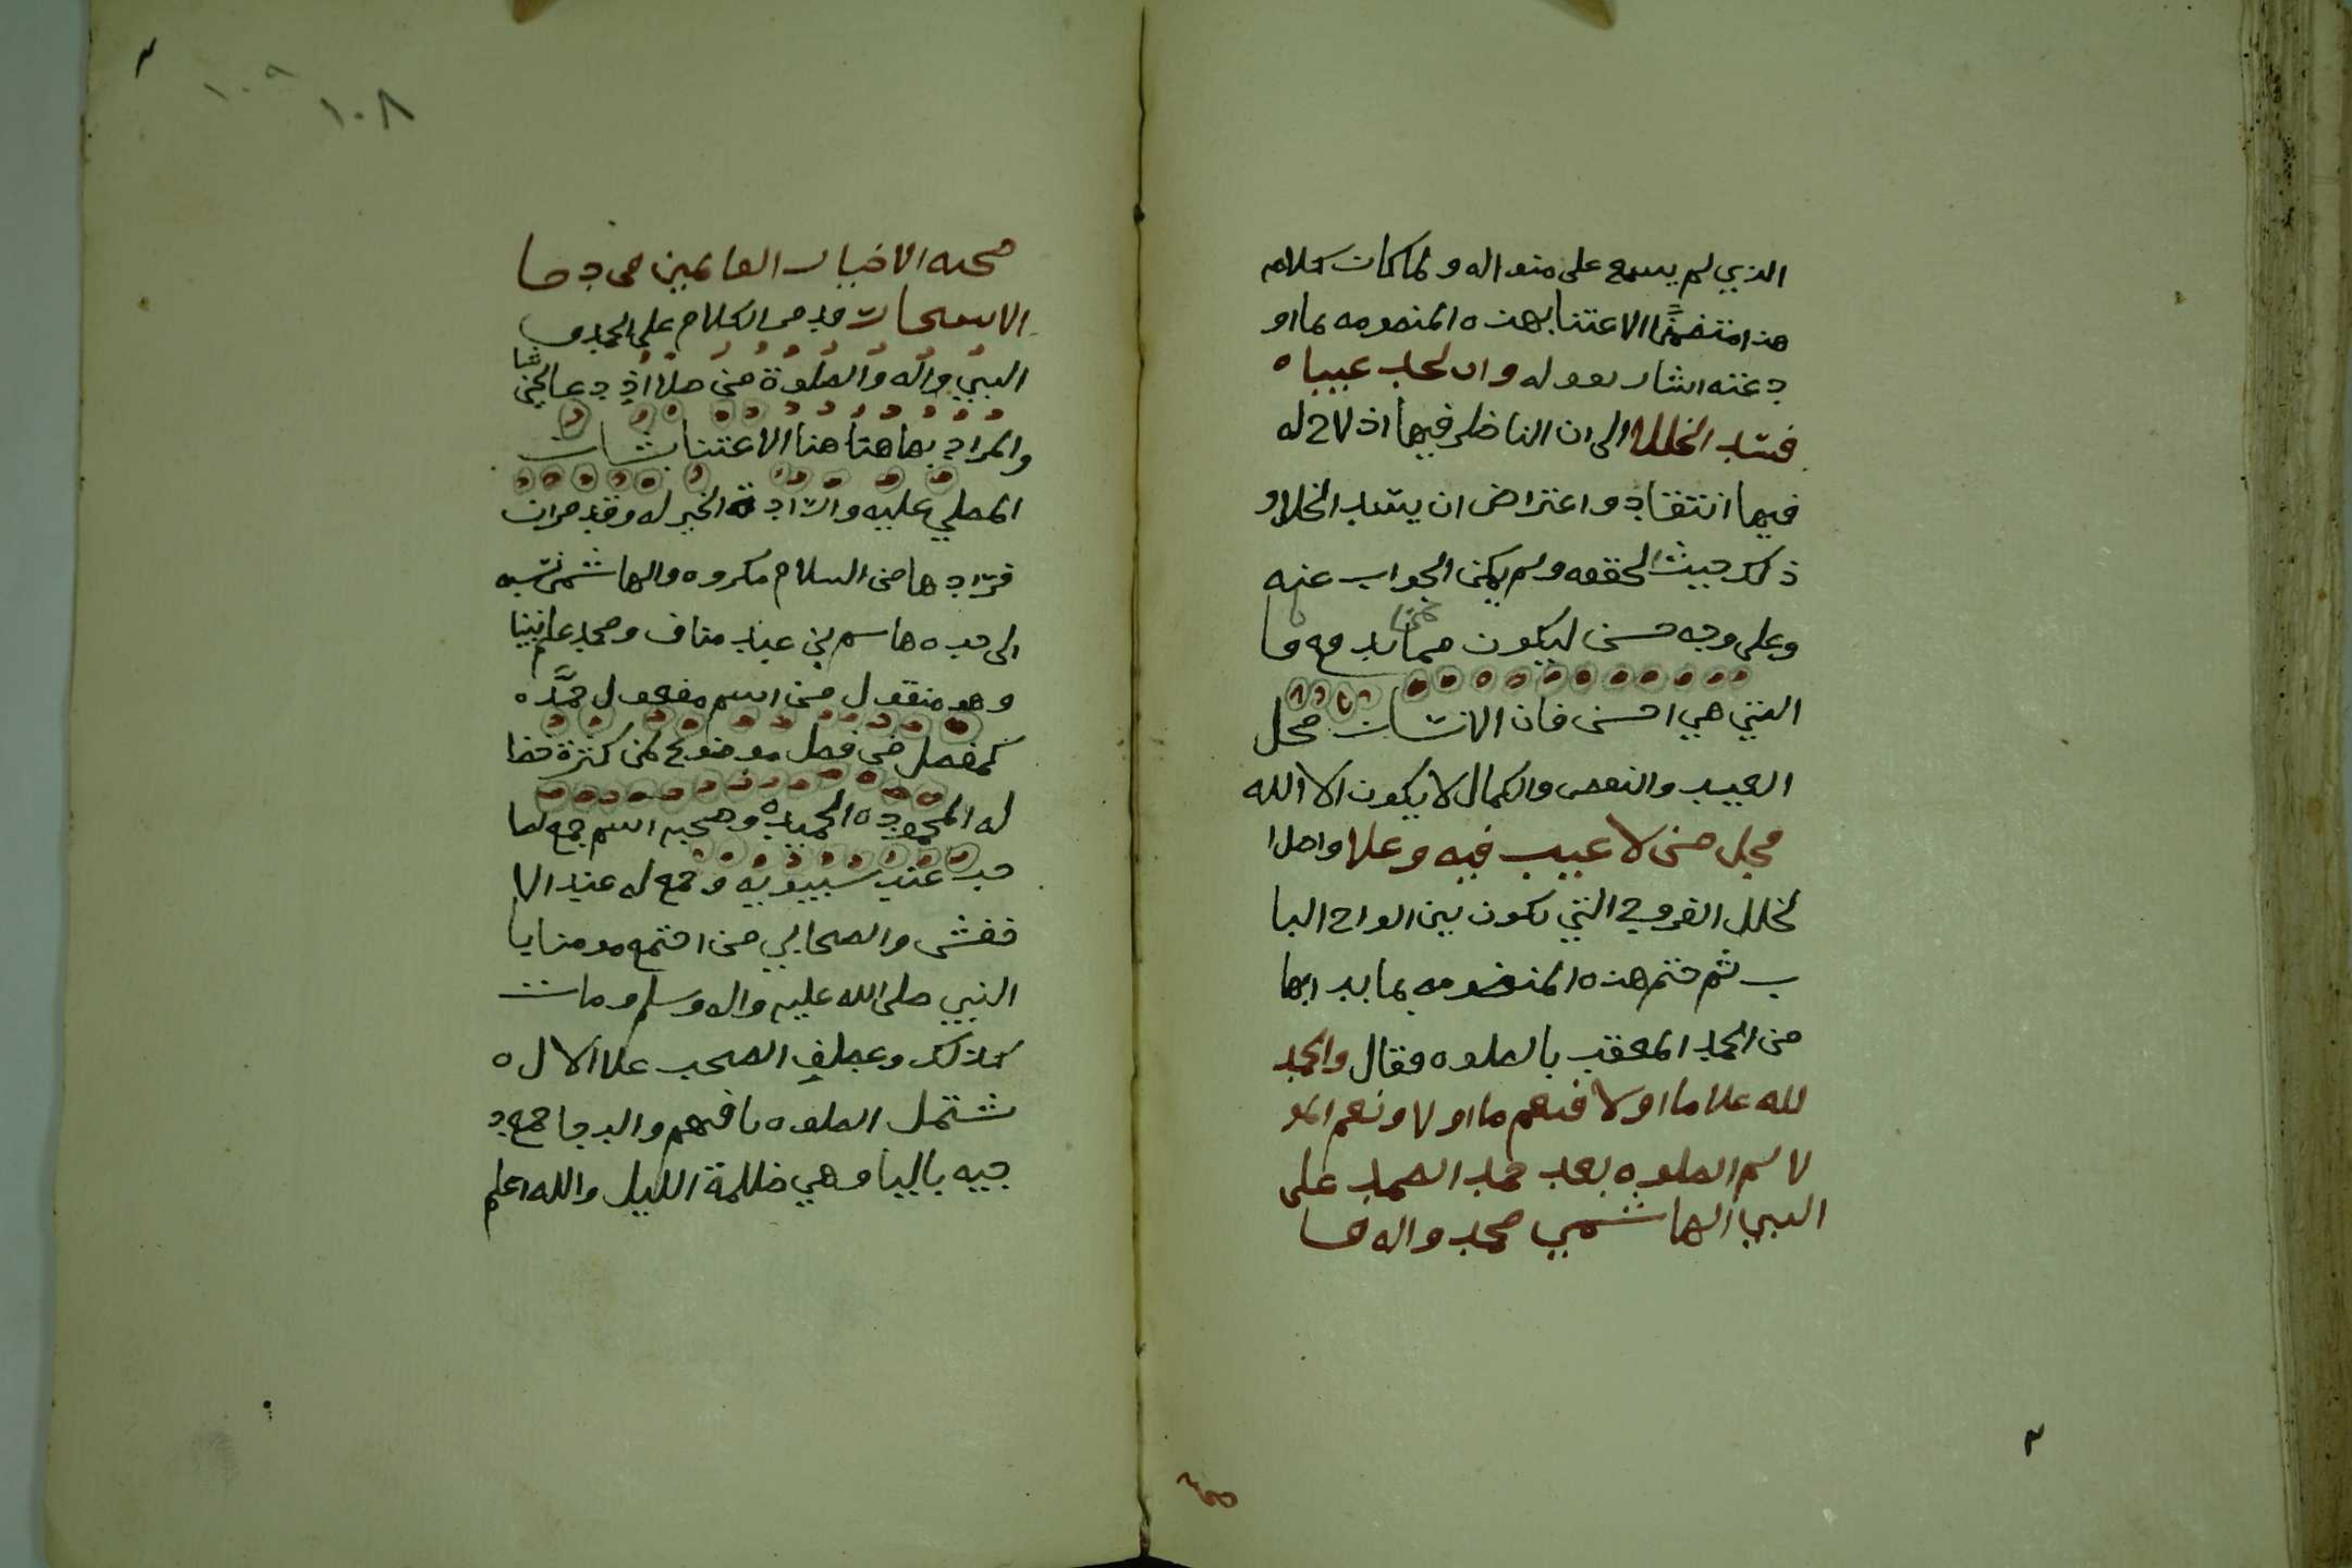 الذي لم يسمع على منواله ولما كان كلام
هذا متضمنًا الاعتنا بهذه المنضومه بما او
دعته اشار بقوله وان تجد عيبا ه
فسد الخللا الى ان الناظر فيها اذ لاح له
فيها انتقاد واعتراض ان يسد الخلل و
ذلك حيث الحققه ولم يمكن الجواب عنه
وعلى وجه حسن ليكون ممن يدفع با
التي هي احسن فان الانسان محل
العيب والنقص والكمال لا يكون الا الله
فجل من لا عيب فيه وعلا واصل ا
لخلل الفروج التي تكون بين الواح البا
ب ثم ختم هذه المنضومه بما بدا بها
من الحمد المعقب بالصلوه فقال والحمد
لله على ما اولا فنعم ما اولا ونعم المو
لا ثم الصلوه بعد حمد الصمد على
النبي الهاشمي محمد واله وا
١٠٩
١٠٨
صحبه الاخيار القائمين في دجا
الاسحار قد مر الكلام على الحمد و
النبي واله والصلوة من صلا اذ دعا بخير
والمراد بها هنا الاعتنا بشان
المصلي عليه وارادة الخير له وقد مر ان
افرادها من السلام مكروه والهاشمي نسبه
الى جده هاشم بن عبد مناف ومحمد علم نبينا
وهو منقول من اسم مفعول حمَّد ه
كمفصل من فصل موضوع لمن كثرة خصا
له المحموده الحميده وصحبه اسم جمع لصا
حب عند سيبويه وجمع له عند الا
خفش والصحابي من اجتمع مومنا با
النبي صلى الله عليه واله وسلم ومات
كذلك وعطف الصحب على الال ه
شتمل الصلوه باقيهم والدجا جمع د
جيه باليا وهي ظلمة الليل والله اعلم